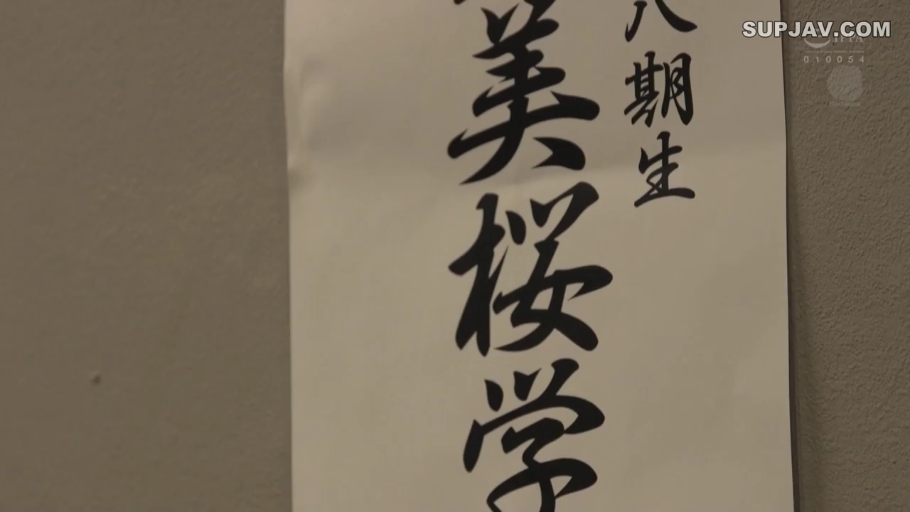 SUPJAV.COM
010054
八期生
美桜学